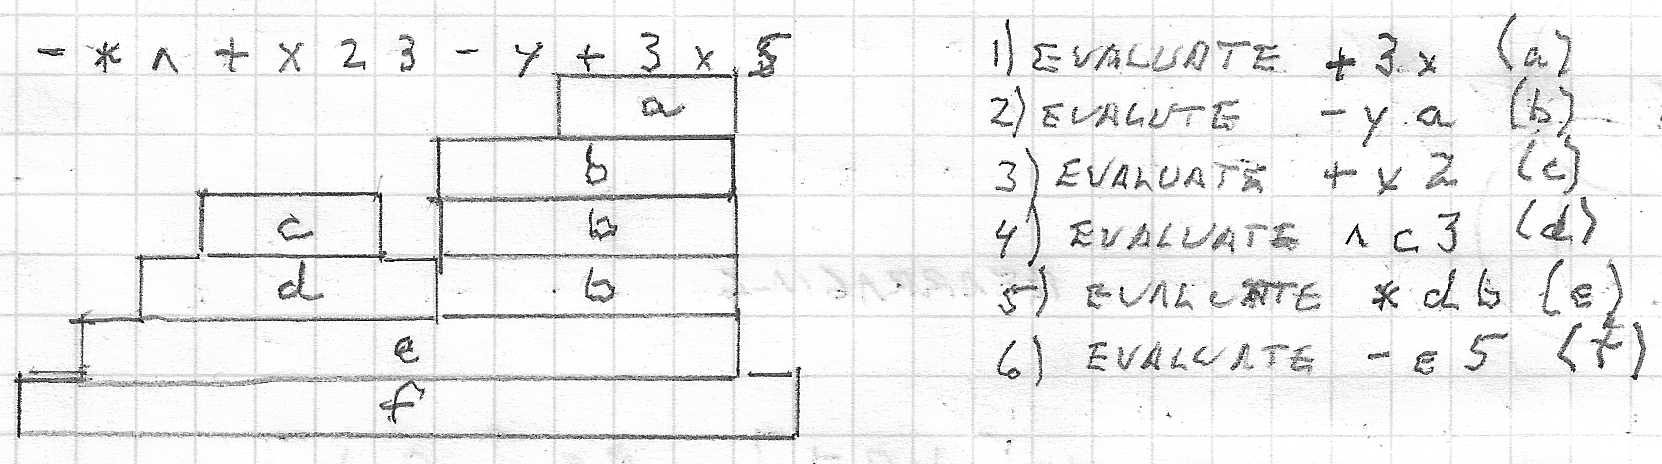 - * ∧ + x 2 3 - y + 3 x 5
a
b
c b
d b
e
f
1) EVALUATE + 3 x (a)
2) EVALUTE - y a (b)
3) EVALUATE + x 2 (c)
4) EVALUATE ∧ c 3 (d)
5) EVALUATE * d b (e)
6) EVALUATE - e 5 (f)